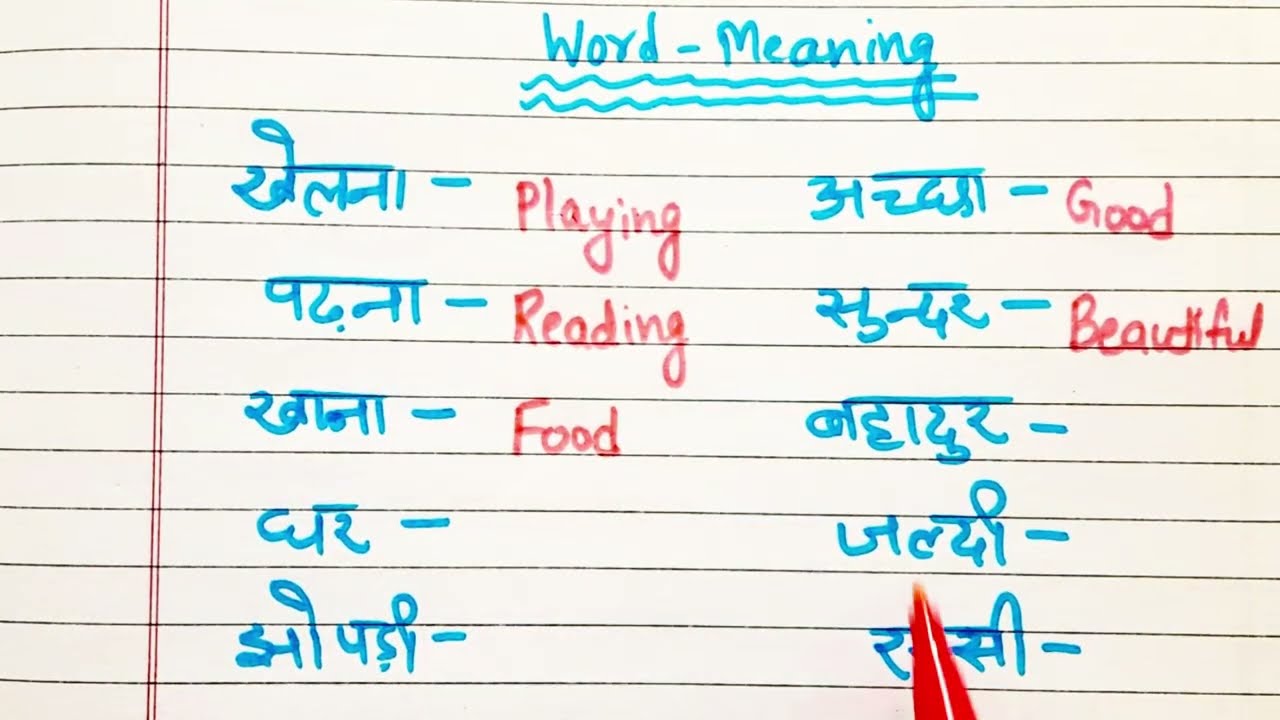 Word - Meaning
खेलना - Playing अच्छा - Good
पढ़ना - Reading सुन्दर - Beautiful
खाना - Food बहादुर -
घर - जल्दी -
झोपड़ी -